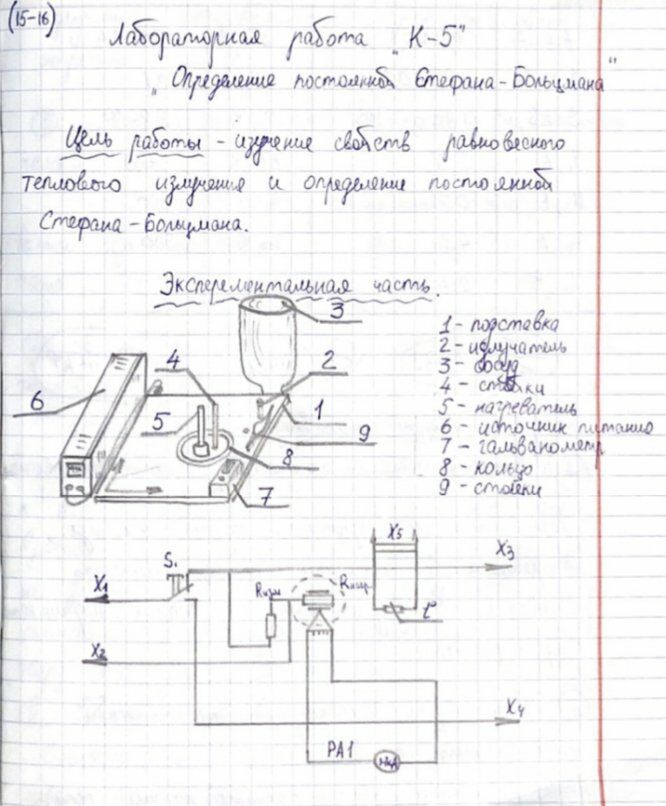 (15-16)
Лабораторная работа „К-5"
„Определение постоянной Стефана-Больцмана"
Цель работы - изучение свойств равновесного
теплового излучения и определение постоянной
Стефана-Больцмана.
Эксперементальная часть.
3
1 - подставка
2 - излучатель
3 - сосуд
4 - стойки
5 - нагреватель
6 - источник питания
7 - гальванометр
8 - кольцо
9 - стойки
4
2
6
5
1
9
8
7
X5
S1
X3
X1
Rизм
Rнагр
t°
X2
X4
PA1